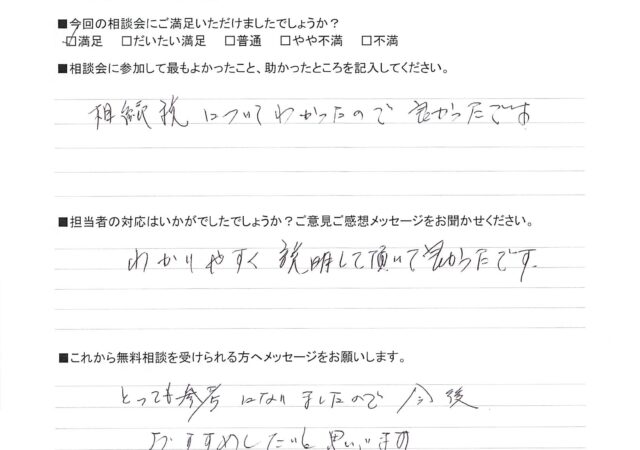 ■今回の相談会にご満足いただけましたでしょうか？
☑満足　□だいたい満足　□普通　□やや不満　□不満
■相談会に参加して最もよかったこと、助かったところを記入してください。
相続税についてわかったので良かったです
■担当者の対応はいかがでしたでしょうか？ご意見ご感想メッセージをお聞かせください。
わかりやすく説明して頂いて良かったです.
■これから無料相談を受けられる方へメッセージをお願いします。
とっても参考になりましたので今後
おすすめしたいと思います